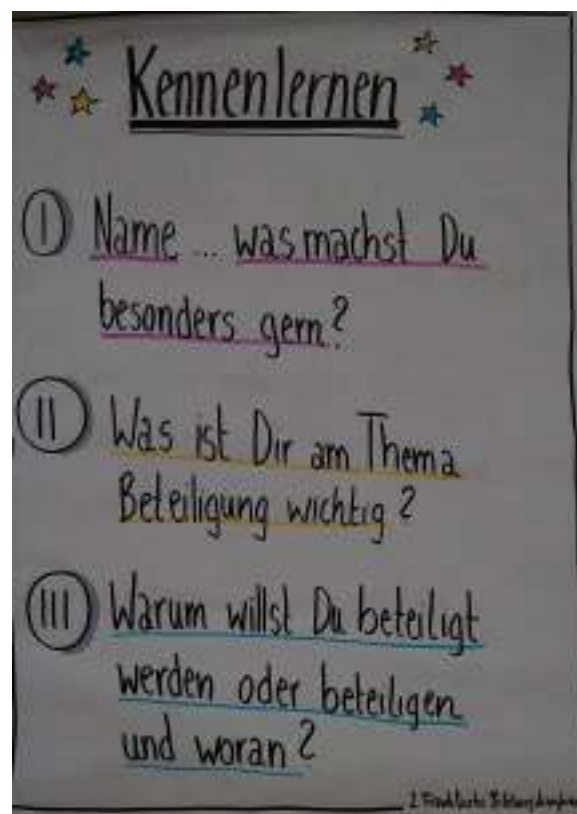 Kennenlernen
I Name ... was machst Du
besonders gern?
II Was ist Dir am Thema
Beteiligung wichtig?
III Warum willst Du beteiligt
werden oder beteiligen
und woran?
2.